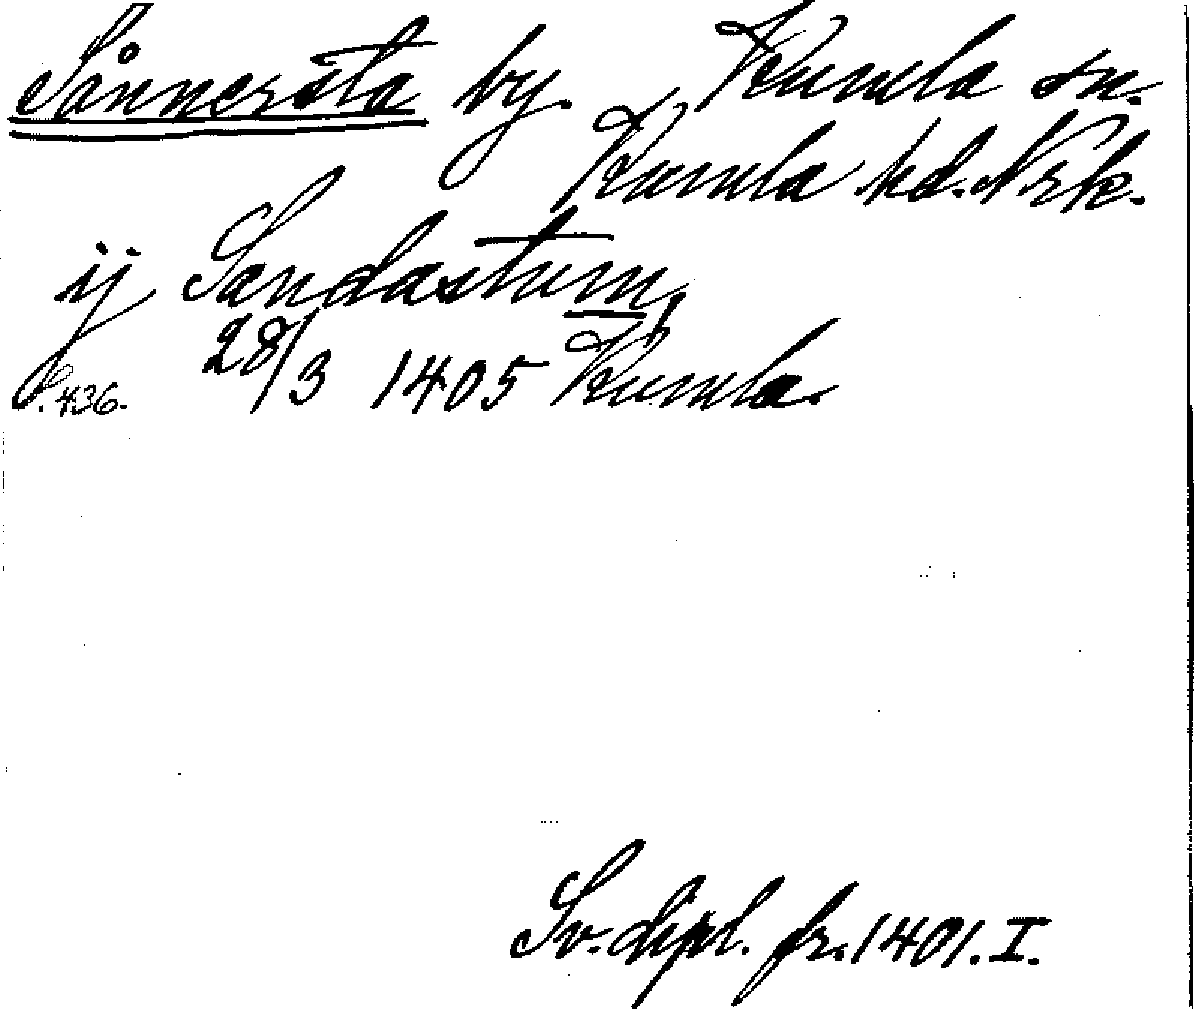 Sånnersta by. Kumla sn.
Kumla hd. Nrk.
ij Sandastum,
S. 436. 28/3 1405 Kumla.
Sv. dipl. fr. 1401. I.